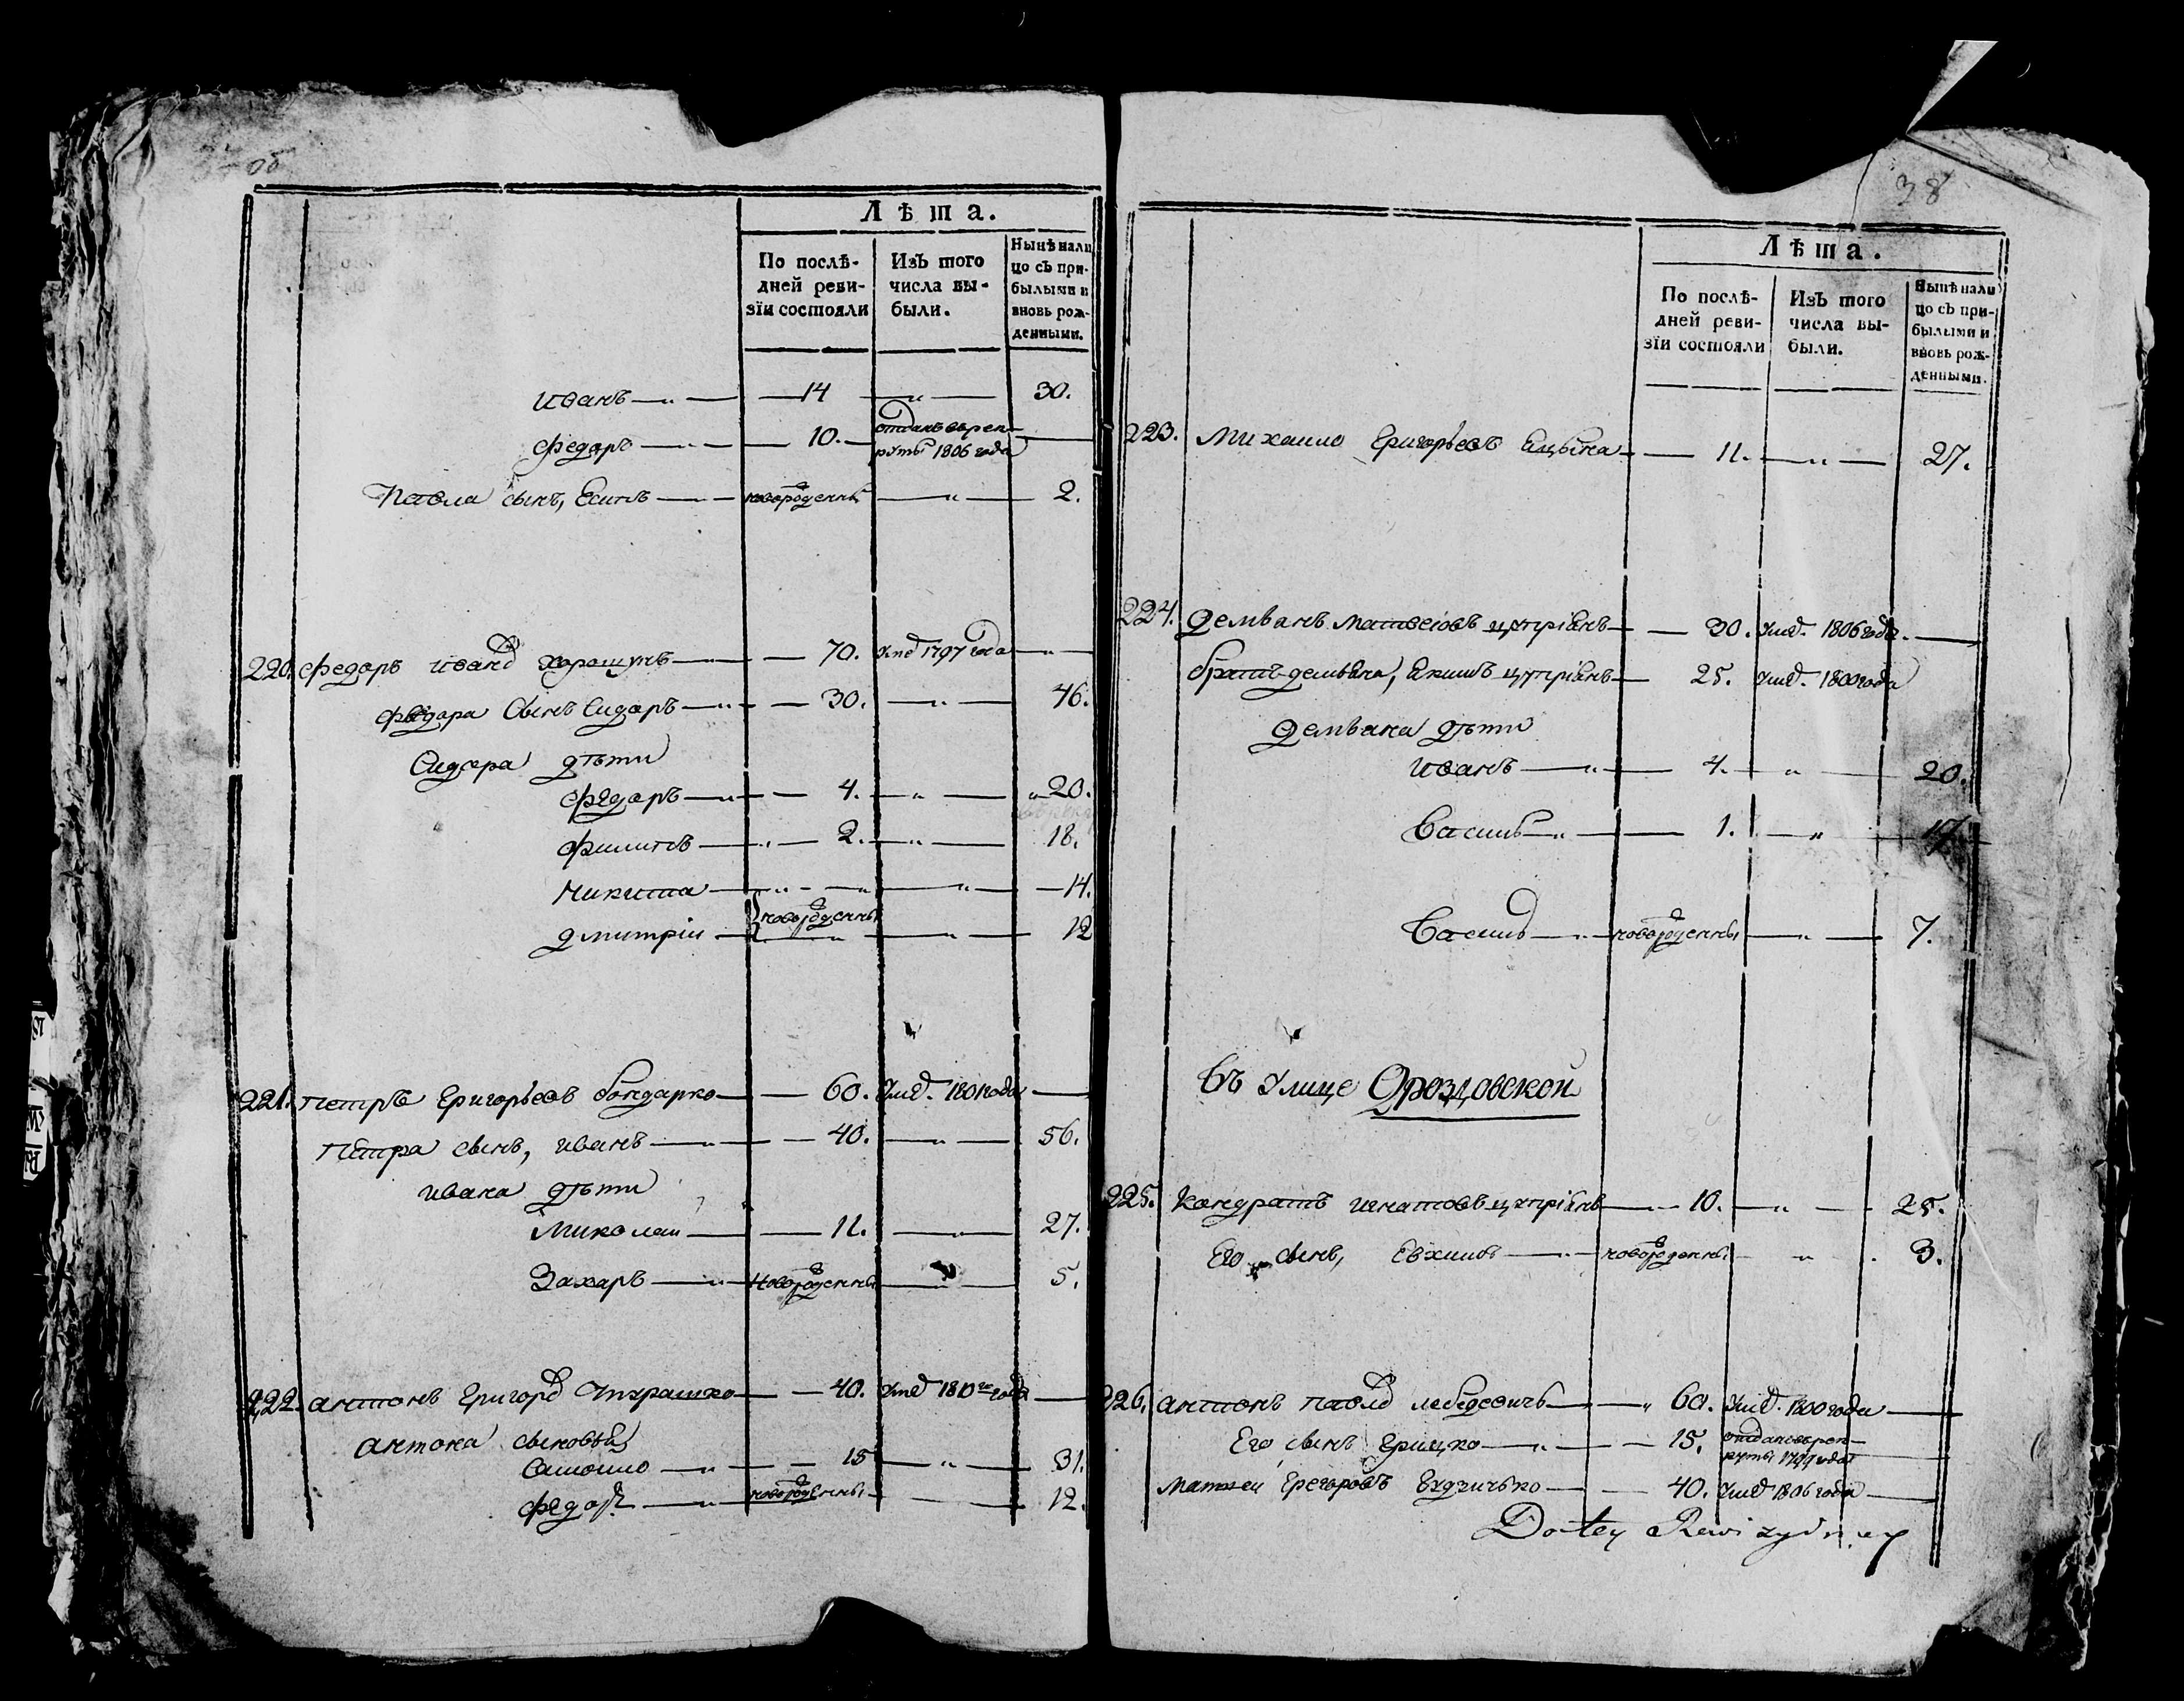 об
Лѣта.
По послѣ-
дней реви-
зїи состояли
Изъ того
числа вы-
были.
Нынѣ нали
цо съ при-
былыми и
вновь рож-
денными.
иванъ — 14 — „ — 30.
Федаръ — „ — 10. — отданъ въ рек-
руты 1806 года —
Павла сынъ, Есипъ — новорожденны — „ — 2.
220. Федаръ иванд Харошунъ — 70. умед 1797 года — „ —
Федара Сынъ Сидаръ — „ — 30. — „ — 46.
Сидора дѣти
Федаръ — „ — 4. — „ — „ 20.
Филипъ — „ — 2. — „ — 18.
Никита — „ - „ — „ — 14.
новорожденны
дмитріи — „ — „ — 12
221. Петръ Григорьевъ бондарко — 60. умед. 1801 года —
Петра сынъ, иванъ — „ — 40. — „ — 56.
ивана дѣти
Миколаи — 11. — „ — 27.
Захаръ — „ — новорожденны — „ — 5.
222. антонъ Григорд — 40. умед 1810го года —
антона сыновья
Самоило — „ — 15 — „ — 31.
Федор — „ — новорожденны — 12.
38
Лѣта.
По послѣ-
дней реви-
зїи состояли
Изъ того
числа вы-
были.
Нынѣ нали
цо съ при-
былыми и
вновь рож-
денными.
223. Михаило Григорьевъ — 11. — „ — 27.
224. демьянъ матвеювъ цупріянъ — 30. умед. 1806 года. —
братъ демьяна, Якимъ цупріянъ — 25. умед. 1800 года
демьяна дѣти
иванъ — „ — 4. — „ — 20.
Василь — „ — 1. — „ — 17.
Василь — „ — новорожденны — „ — 7.
Въ Улице Дроздовской
225. Кондратъ игнатовъ цупріянъ — 10. — „ — 25.
Его сынъ, Евхимъ — „ — новорожденны — „ — 3.
226. антонъ павлд лебедевичъ — „ 60. умед. 1800 года —
Его сынъ Грицко — „ — 15. отданъ въ рек-
руты 1799 года
матвеи Грегоровъ — 40. умед 1806 года —
Dostey Rewizydney